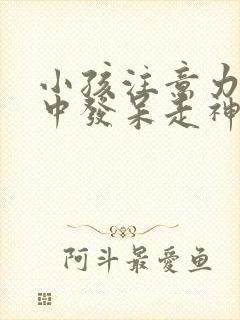 小孩注意力
中發呆走神
阿斗最愛鱼